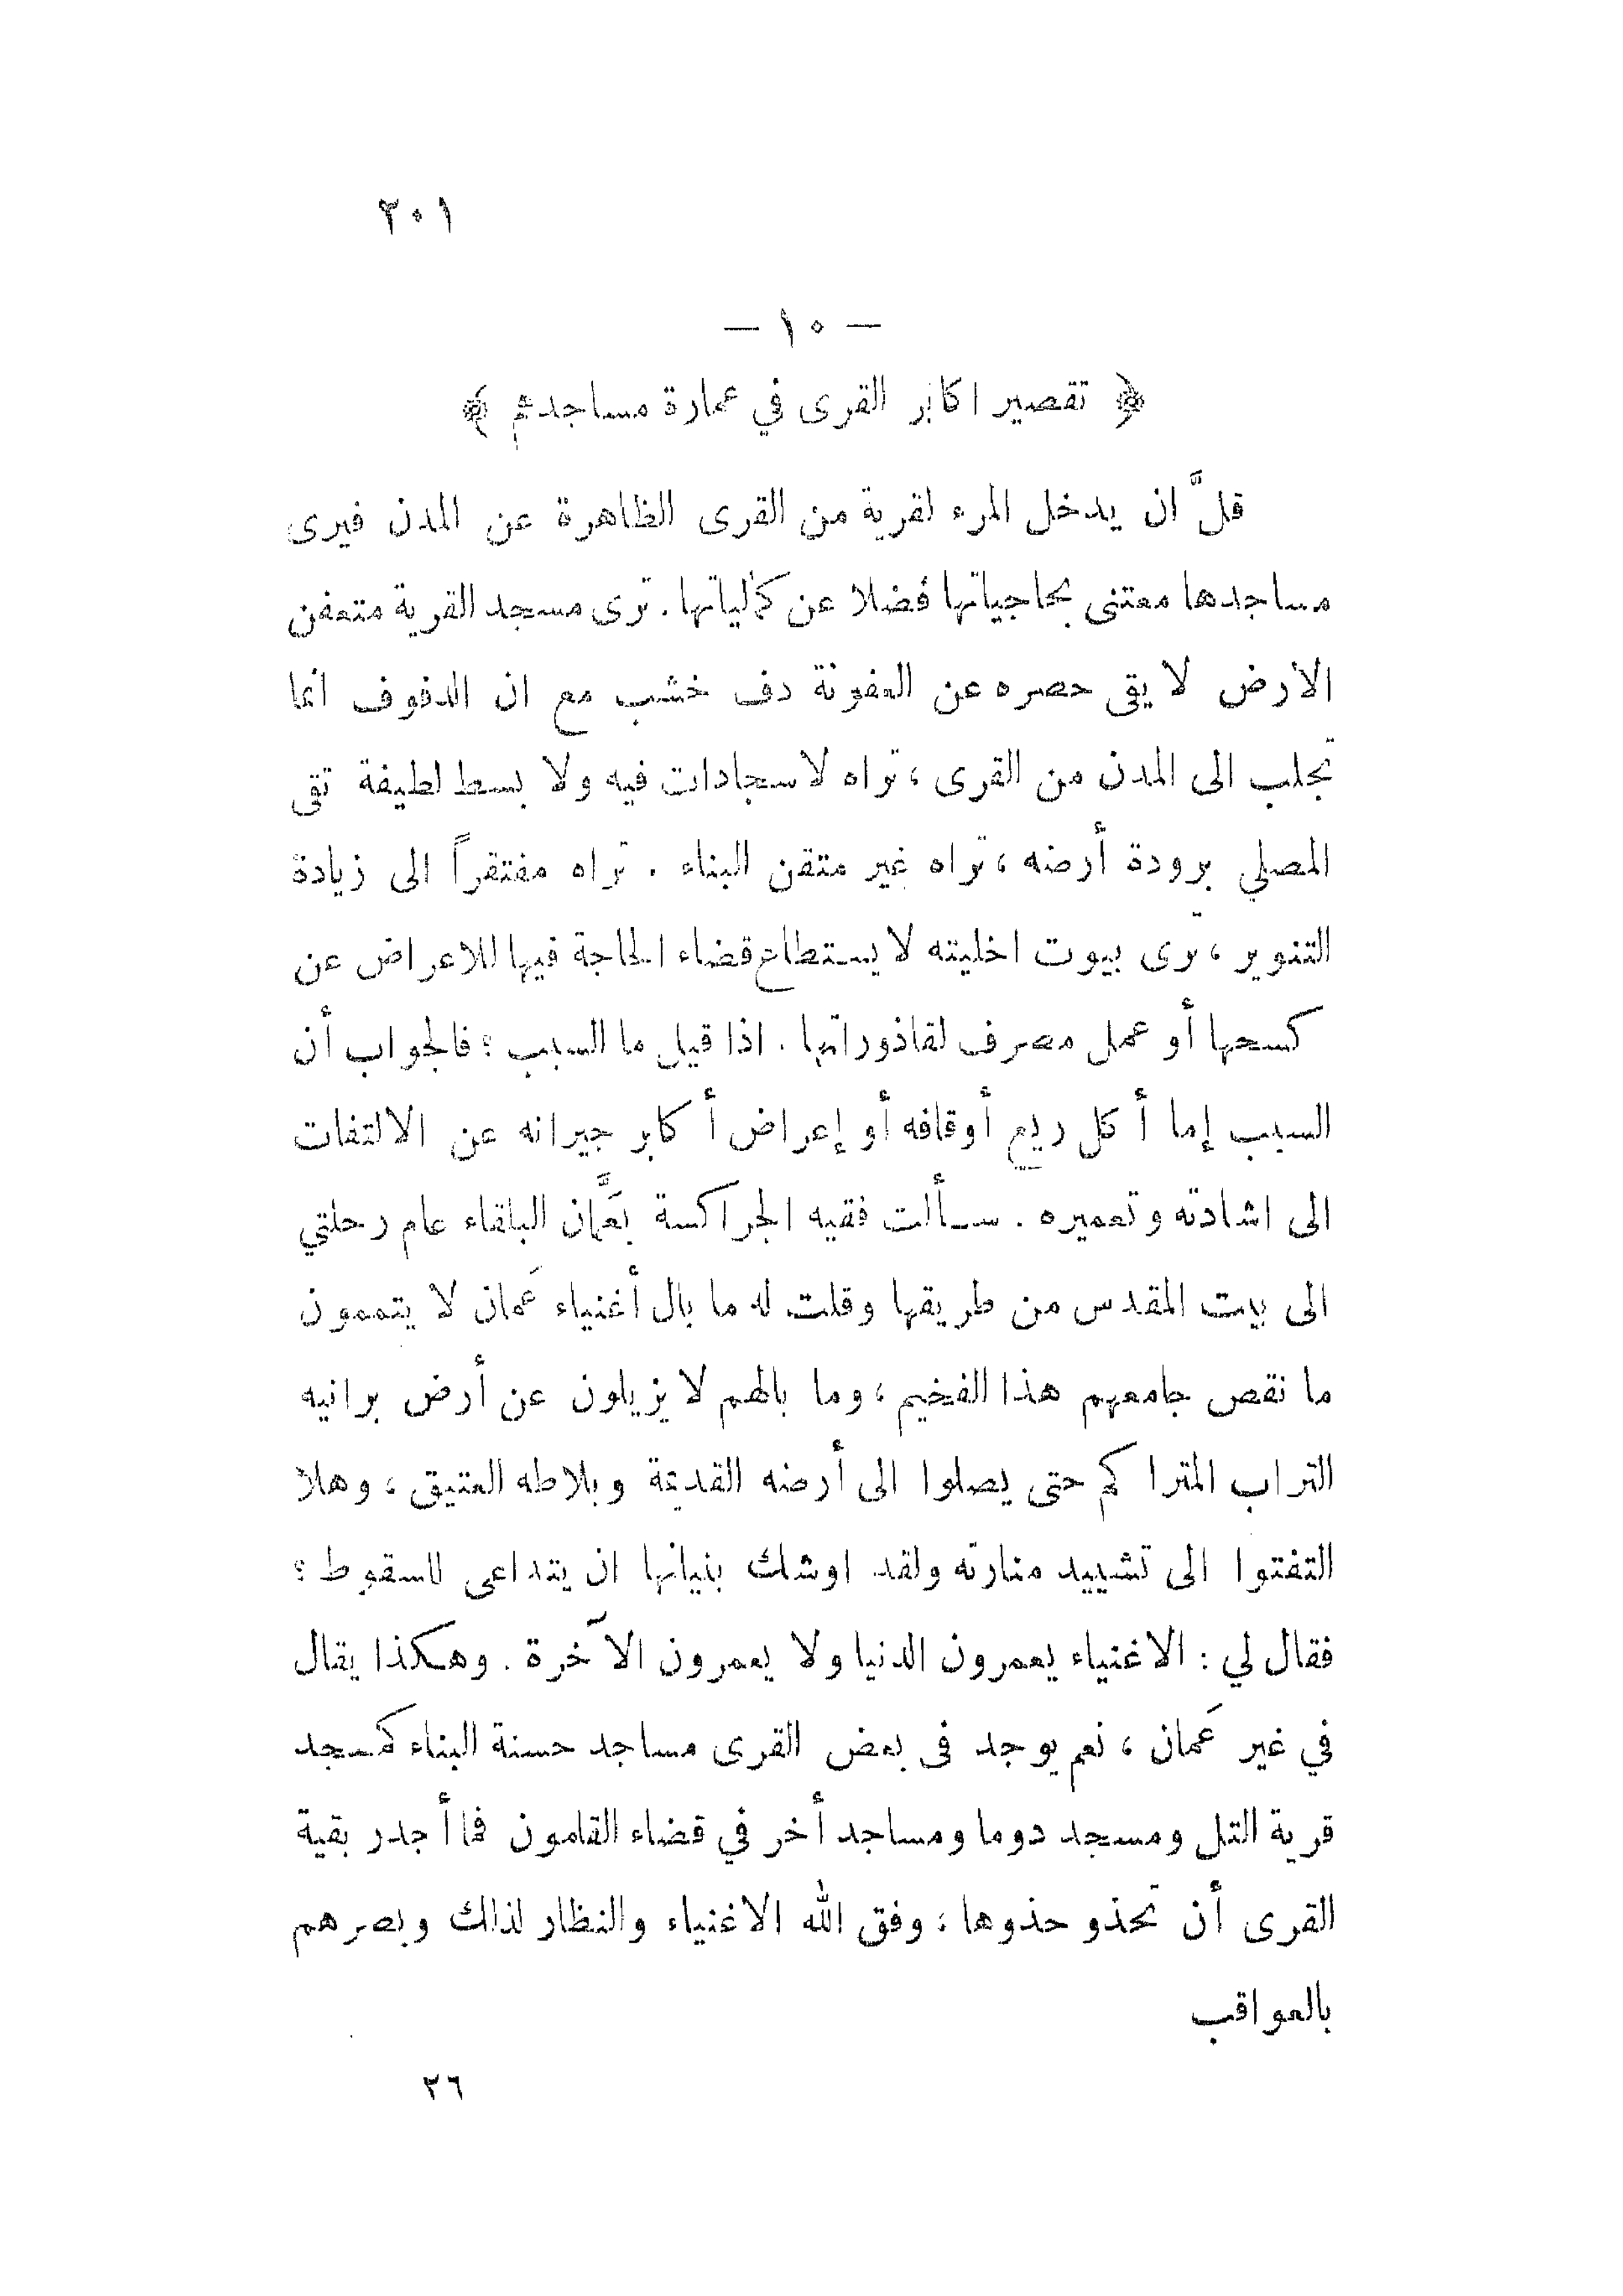 ٢٠١
— ١٠ —
﴿ تقصير اكابر القرى في عمارة مساجدهم ﴾
قلَّ ان يدخل المرء لقرية من القرى الظاهرة عن المدن فيرى
مساجدها معتنى بحاجياتها فضلا عن كمالياتها . ترى مسجد القرية متعفن
الارض لا يقى حصره عن العفونة دف خشب مع ان الدفوف انما
تجلب الى المدن من القرى ، تراه لا سجادات فيه ولا بسط لطيفة تقى
المصلي برودة أرضه ، تراه غير متقن البناء . تراه مفتقراً الى زيادة
التنوير ، ترى بيوت اخليته لا يستطاع قضاء الحاجة فيها للاعراض عن
كسحها أو عمل مصرف لقاذوراتها . اذا قيل ما السبب ؟ فالجواب أن
السبب إما أكل ريع أوقافه أو إعراض أكابر جيرانه عن الالتفات
الى اشادته وتعميره . سألت فقيه الجراكسة بعَمَّان البلقاء عام رحلتي
الى بيت المقدس من طريقها وقلت له ما بال أغنياء عَمان لا يتممون
ما نقص جامعهم هذا الفخيم ، وما بالهم لا يزيلون عن أرض برانيه
التراب المتراكم حتى يصلوا الى أرضه القديمة وبلاطه العتيق ، وهلا
التفتوا الى تشييد منارته ولقد اوشك بنيانها ان يتداعى للسقوط ؟
فقال لي : الاغنياء يعمرون الدنيا ولا يعمرون الآخرة . وهكذا يقال
في غير عَمان ، نعم يوجد فى بعض القرى مساجد حسنة البناء كمسجد
قرية التل ومسجد دوما ومساجد أخر في قضاء القلمون فما أجدر بقية
القرى أن تحذو حذوها ، وفق الله الاغنياء والنظار لذلك وبصرهم
بالعواقب
٢٦